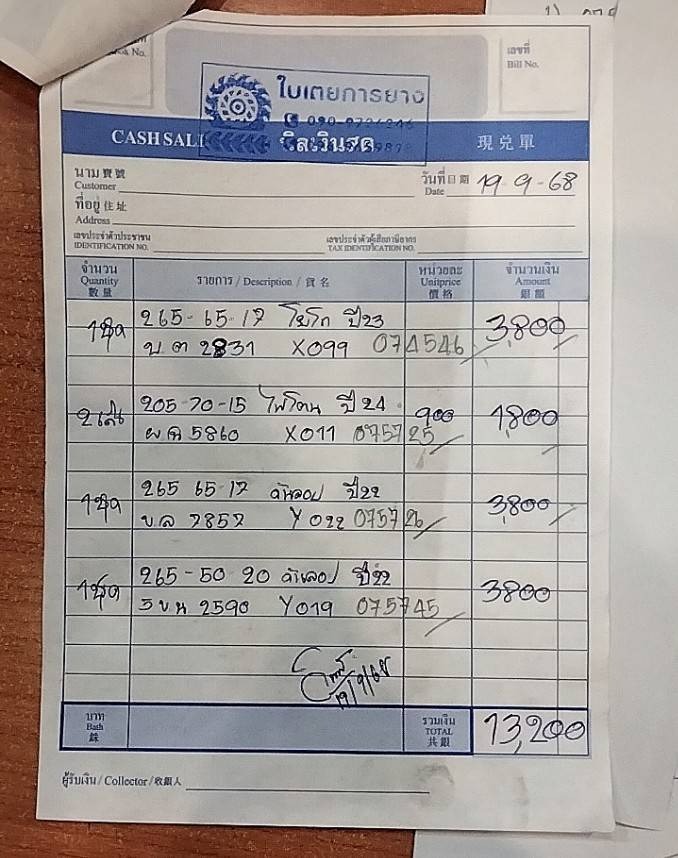 Book No.
เลขที่
Bill No.
ใบเตยการยาง
CASH SALE บิลเงินสด 現兑單
นาม 寶號
Customer
วันที่ 日期 19-9-68
Date
ที่อยู่ 住址
Address
เลขประจำตัวประชาชน
IDENTIFICATION NO.
เลขประจำตัวผู้เสียภาษีอากร
TAX IDENTIFICATION NO.
จำนวน รายการ / Description / 貨名 หน่วยละ จำนวนเงิน
Quantity Unitprice Amount
數量 價格 銀額
1ชุด 265-65-17 โยโก ปี23 3,800
บต 2831 X099 074546
2เส้น 205-70-15 ไฟโตน ปี24 900 1,800
ผฉ 5860 X011 075725
1ชุด 265 65-17 ดันลอป ปี22 3,800
บล 7857 Y022 075726
1ชุด 265-50 20 ดันลอป ปี22 3800
5ขน 2590 Y019 075745
19/9/68
บาท รวมเงิน 13,200
Bath TOTAL
銖 共銀
ผู้รับเงิน / Collector / 收銀人